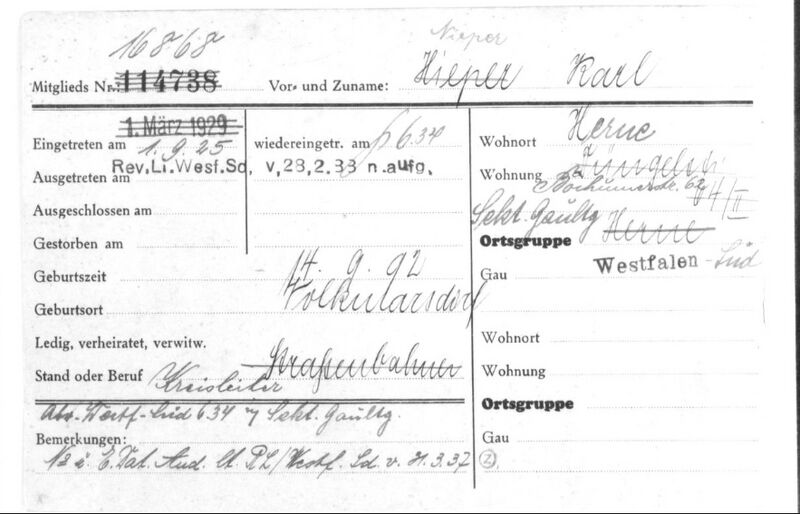 Nieper
16868
Mitglieds Nr.: 114738 Vor- und Zuname: Hieper Karl
1. März 1929
Eingetreten am 1.9.25 wiedereingetr. am 6.34
Rev.Li.Westf.Sd. v.28.2.33 n.aufg.
Ausgetreten am
Ausgeschlossen am
Gestorben am
Geburtszeit 14. 9. 92
Geburtsort
Ledig, verheiratet, verwitw.
Stand oder Beruf Straßenbahner
Kreisleiter
Westf.-Süd 6 34 Sekt. Gaultg.
Bemerkungen:
Nr. u. E. Dat. Änd. lt. RL/Westf. Sd. v. 31.3.37
Wohnort Herne
Wohnung
Bochumerstr. 62
Sekt. Gaultg
Ortsgruppe Herne
Gau Westfalen-Süd
Wohnort
Wohnung
Ortsgruppe
Gau